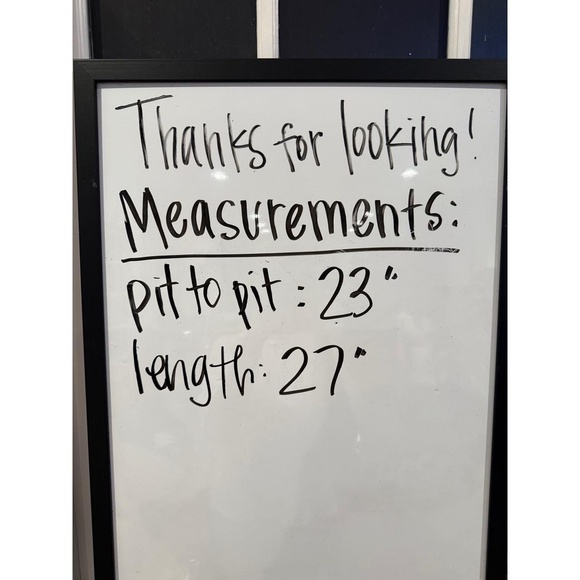 Thanks for looking!
Measurements:
pit to pit : 23"
length: 27"